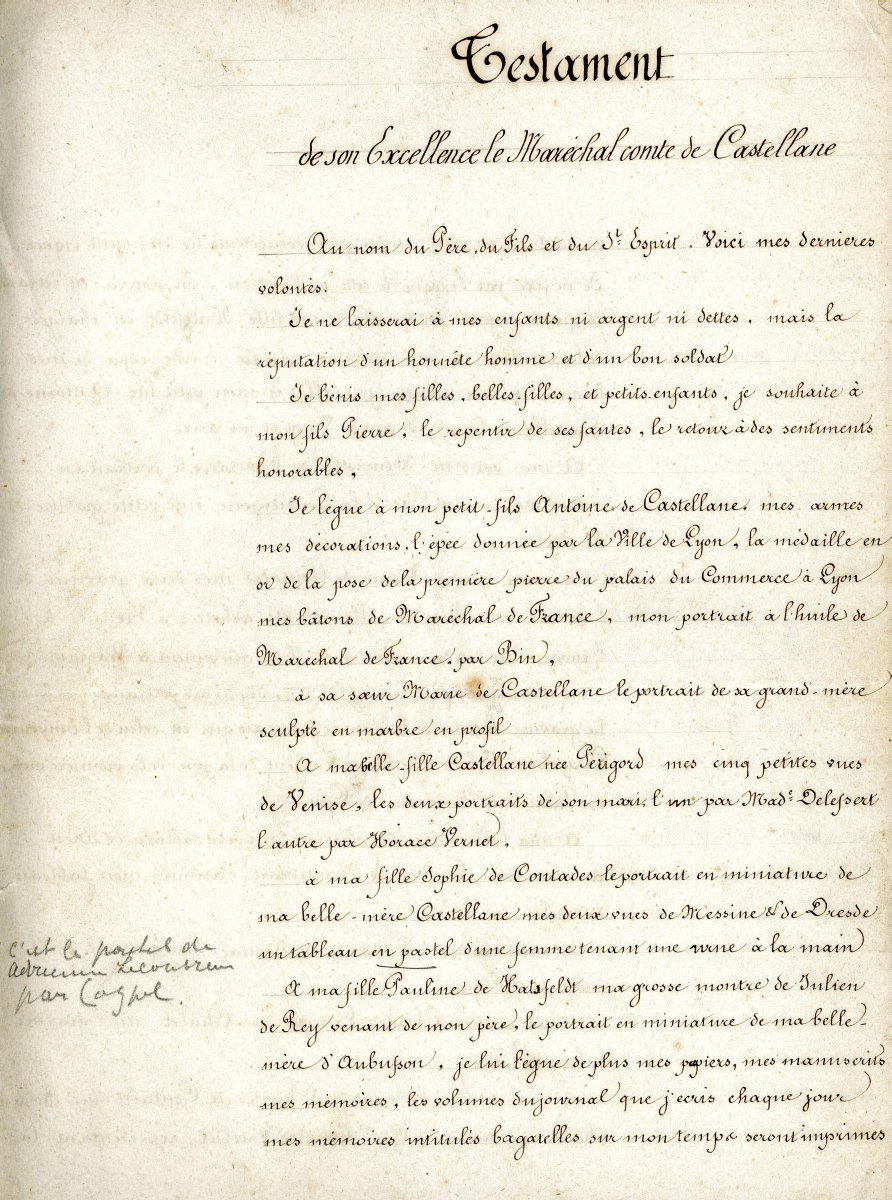 Testament
de son Excellence le Maréchal comte de Castellane
Au nom du Père, du Fils et du St. Esprit. Voici mes dernieres
volontés.
Je ne laisserai à mes enfants ni argent ni dettes, mais la
réputation d'un honnête homme et d'un bon soldat
Je bénis mes filles, belles-filles, et petits-enfants, je souhaite à
mon fils Pierre, le repentir de ses fautes, le retour à des sentiments
honorables,
Je lègue à mon petit-fils Antoine de Castellane, mes armes
mes décorations, l'épée donnée par la Ville de Lyon, la médaille en
or de la pose de la première pierre du palais du Commerce à Lyon
mes bâtons de Maréchal de France, mon portrait à l'huile de
Maréchal de France, par Bin,
à sa sœur Marie de Castellane le portrait de sa grand-mère
sculpté en marbre en profil
A ma belle-fille Castellane née Périgord mes cinq petites vues
de Venise, les deux portraits de son mari, l'un par Made. Delessert
l'autre par Horace Vernet,
à ma fille Sophie de Contades le portrait en miniature de
ma belle-mère Castellane mes deux vues de Messine & de Dresde
un tableau en pastel d'une femme tenant une urne à la main
c'est le pastel de
Adrienne Lecouvreur
par Coypel.
A ma fille Pauline de Hatsfeldt ma grosse montre de Julien
de Rey venant de mon père, le portrait en miniature de ma belle-
mère d'Aubusson, je lui lègue de plus mes papiers, mes manuscrits
mes mémoires, les volumes du journal que j'écris chaque jour
mes mémoires intitulés bagatelles sur mon temps seront imprimés